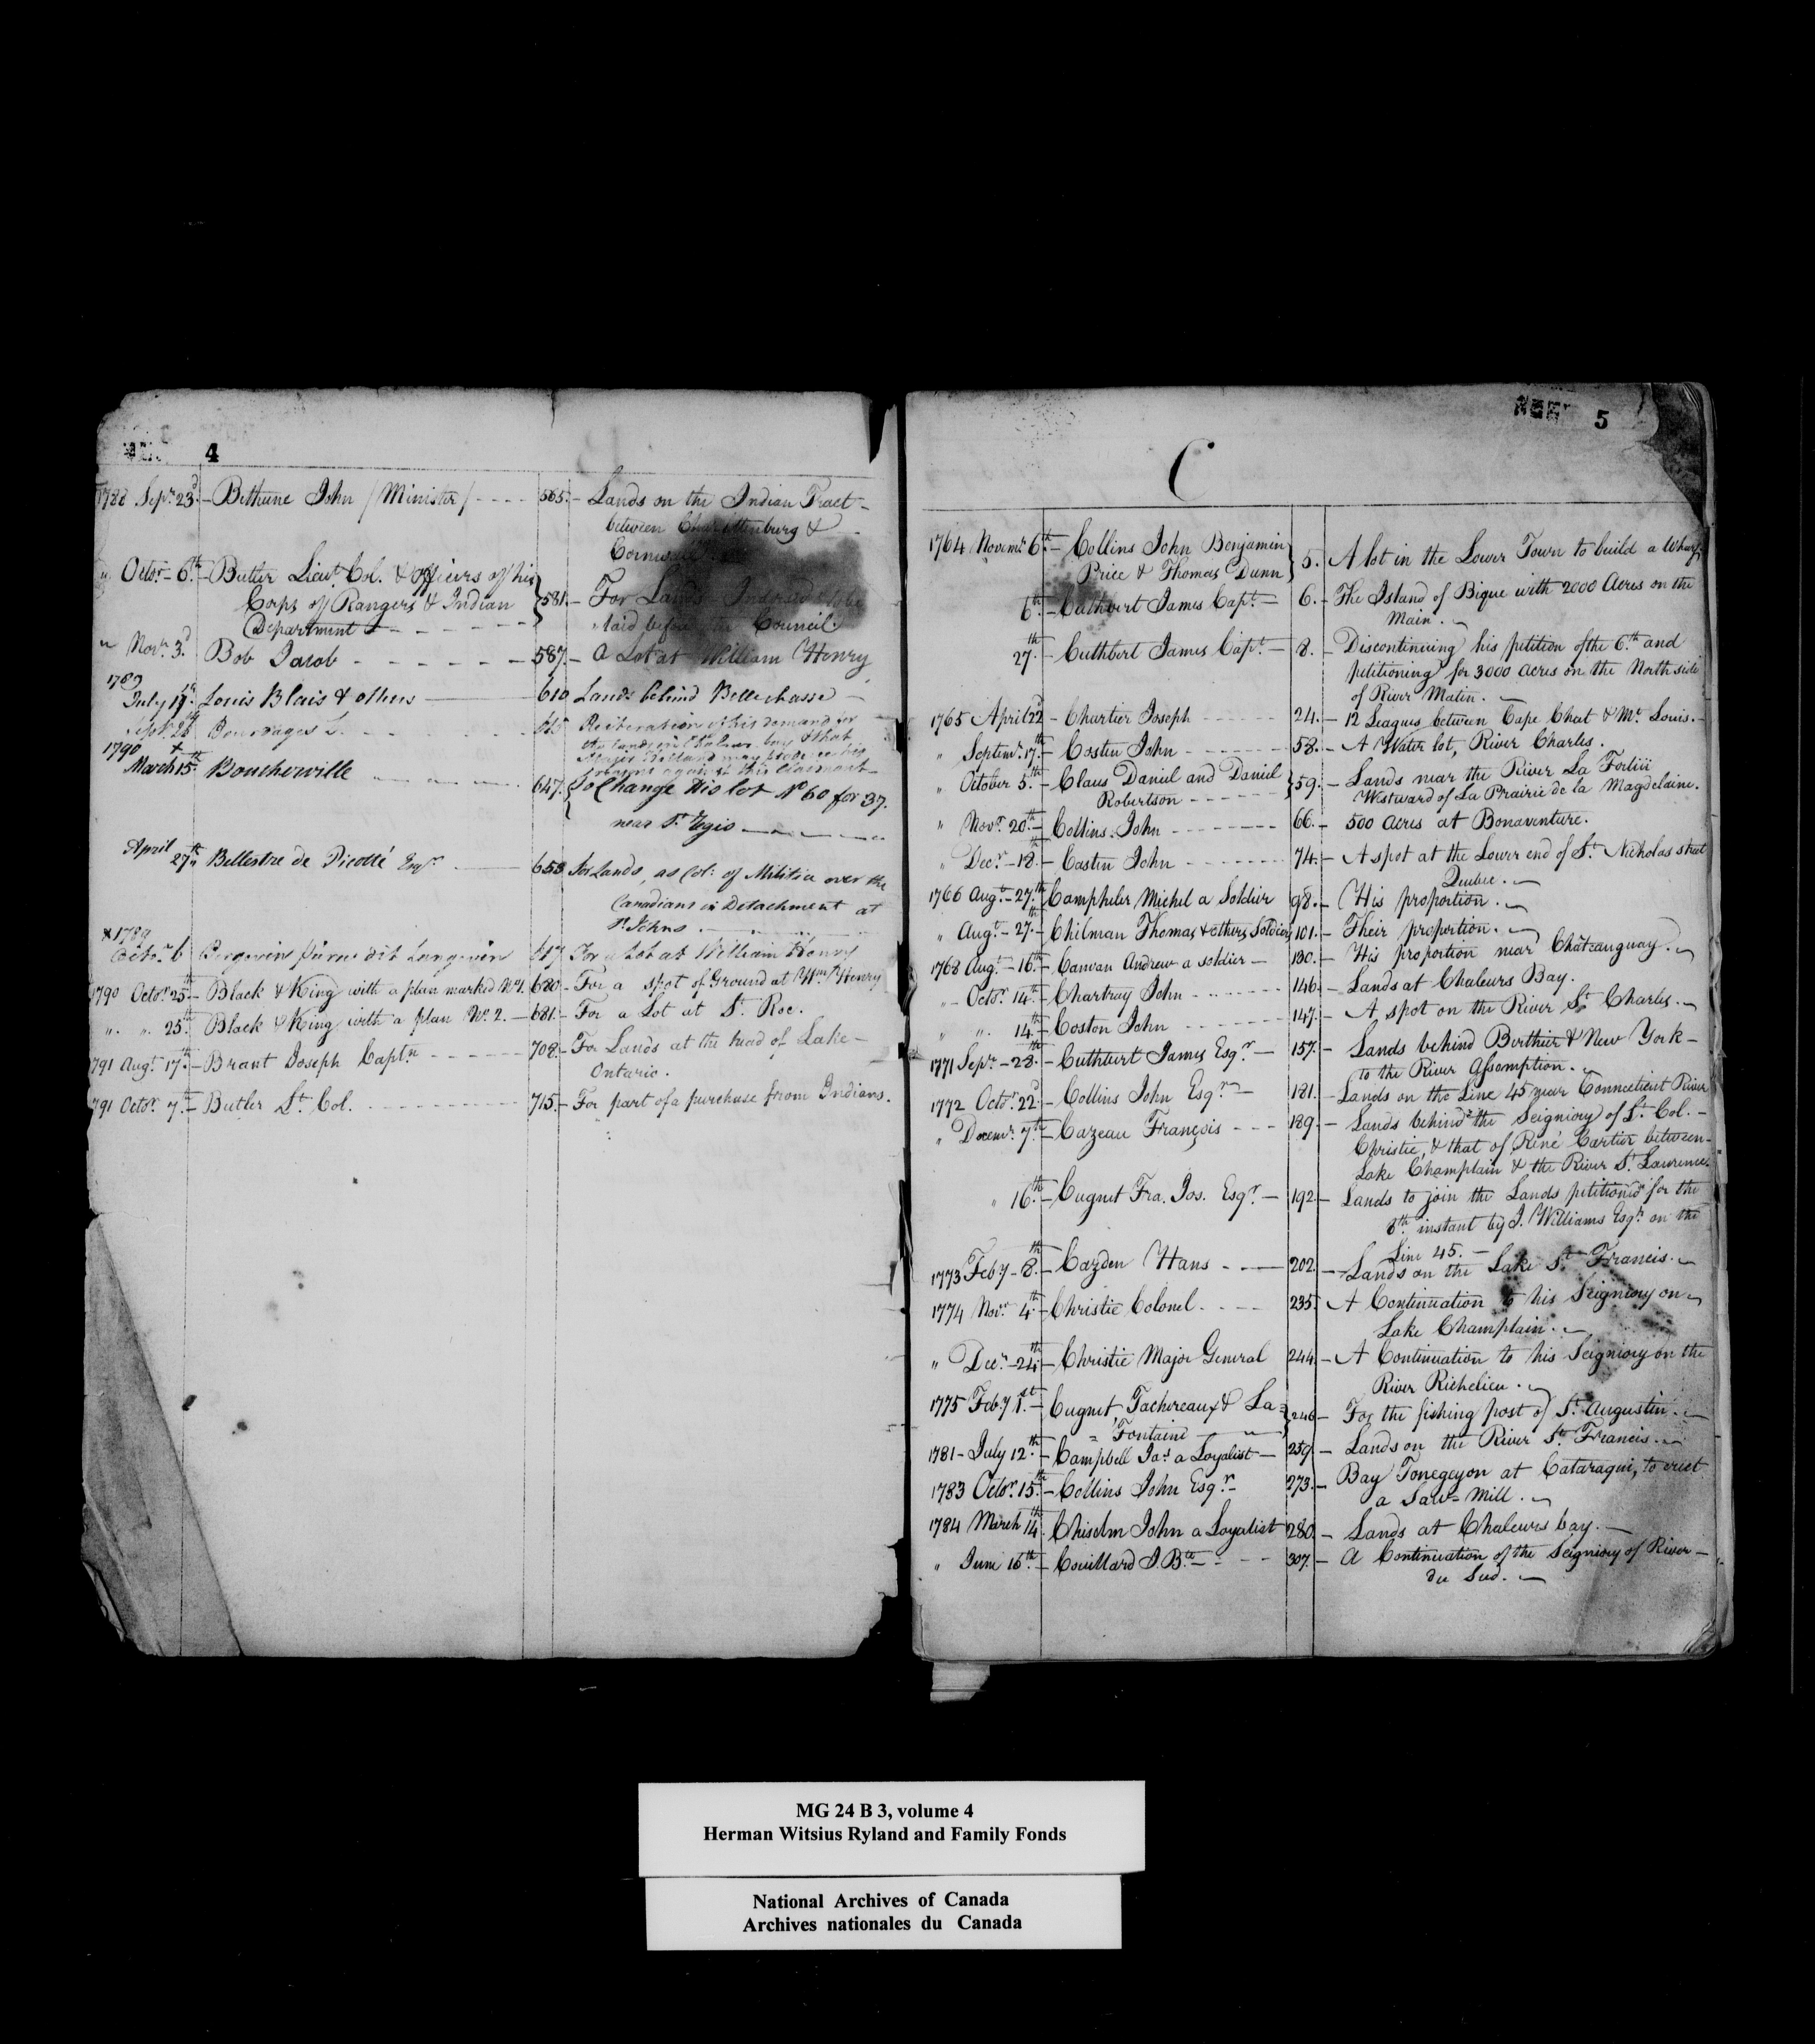 4
1788 Sepr. 23d. - Bethune John / Minister / - - - - 565. - Lands on the Indian Tract -
between Charlottenburg & -
Cornwall.
Octor. - 6th. - Butler Lieut. Col. & officers of his
Corps of Rangers & Indian } 581. - For Lands
Department - - - - - laid before the Council.
" Novr. 3d. Bob Jacob - - - - - - 587. - A Lot at William Henry
1789
July 11th. Louis Blais & others 610 Lands behind Bellechasse -
Sept. 26 Bourdages L. - - - - 615 Reiteration of his demand for
the lands in Chaleur bay & that
Major Holland may produce his
against this claimant -
1790
March 15th. Boucherville - - - 647. To Change His lot No. 60 for 37.
near St. Regis
April
27th. Bellestre de Picotté Esqr. 653 For Lands, as Col. of Militia over the
Canadians in Detachment at
St. Johns.
x 1789
Octor. 6 Bergevin Pierre dit Langevin 617 For a Lot at William Henry
1790 Octor. 25th. - Black & King with a plan marked No. 1. 680 - For a spot of Ground at Wm. Henry
" " 25th. Black & King with a plan No. 2. - 681. - For a Lot at St. Roc.
1791 Augt. 17th. - Brant Joseph Captn. - - - - 708. - For Lands at the head of Lake -
Ontario.
1791 Octor. 7th. - Butler Lt. Col. - - - - - 715. - For part of a purchase from Indians.
5
C
1764 Novemr. 6th. - Collins John Benjamin
Price & Thomas Dunn } 5. A lot in the Lower Town to build a Wharf
6th. - Cuthbert James Capt. - 6. - The Island of Bique with 2000 Acres on the
Main.
27th. - Cuthbert James Capt. - 8. - Discontinuing his petition of the 6th. and
petitioning for 3000 acres on the North side
of River Matin.
1765 April 22d - Chartier Joseph - - - - 24. - 12 Leagues between Cape Chat & Mt. Louis. -
" Septemr. 17th. - Costin John - - - - 58. - A Water lot, River Charles.
" October 5th. - Claus Daniel and Daniel
Robertson - - - - } 59. - Lands near the River La Fortiii
Westward of La Prairie de la Magdelaine.
" Novr. 20th. - Collins John - - - - 66. - 500 Acres at Bonaventure.
" Decr. - 18th. - Costin John - - - - 74. - A spot at the Lower end of St. Nicholas street
Quebec.
1766 Augt. - 27th. Campheler Michel a Soldier 98. - His proportion.
" Augt. - 27th. - Chilman Thomas & others Soldiers 101. - Their proportion.
1768 Augt. - 16th. - Canvan Andrew a soldier - 130. - His proportion near Châteauguay.
" - Octor. 14th. - Chartray John - - - - 146. - Lands at Chaleurs Bay.
" " 14th. - Coston John - - - - 147. - A spot on the River St. Charles.
1771 Sepr. - 28th. - Cuthbert James Esqr. - 157. - Lands behind Berthier & New York -
to the River Assomption.
1772 Octor. 22d. - Collins John Esqr. - 181. - Lands on the Line 45 near Connecticut River
" Decemr. 7th. - Cazeau François - - - 189. - Lands behind the Seigniory of Lt. Col. -
Christie, & that of René Cartier between -
Lake Champlain & the River St. Lawrence.
" 16th. - Cugnet Fra. Jos. Esqr. - 192. - Lands to join the Lands petitioned for the
8th. instant by J. Williams Esqr. on the
Line 45. -
1773 Feby. - 8th. - Cazden Hans - - - 202. - Lands on the Lake St. Francis.
1774 Novr. 4th. - Christie Colonel - - - - 235. A Continuation to his Seigniory on
Lake Champlain.
" Decr. - 24th. - Christie Major General 244. - A Continuation to his Seigniory on the
River Richelieu.
1775 Feby. 1st. - Cugnet, Tachereaux & La =
= Fontaine } 246 - For the fishing post of St. Augustin.
1781 - July 12th. - Campbell Jas. a Loyalist - 259. - Lands on the River St. Francis.
1783 Octor. 15th. - Collins John Esqr. - 273. - Bay Tonegeyon at Cataraqui, to erect
a Saw = Mill.
1784 March 14th. Chiselm John a Loyalist 280. - Lands at Chaleurs bay.
" June 16th. - Couillard J. Bte. - - - - 307. - A Continuation of the Seigniory of River -
du Sud.
MG 24 B 3, volume 4
Herman Witsius Ryland and Family Fonds
National Archives of Canada
Archives nationales du Canada